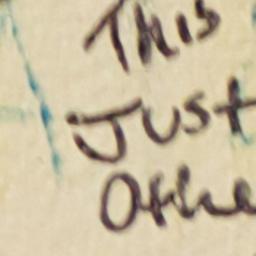 This
Just
Othe